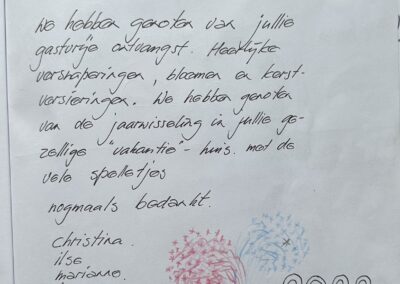 We hebben genoten van jullie
gastvrije ontvangst. Heerlijke
versnaperingen, bloemen en kerst-
versieringen. We hebben genoten
van de jaarwisseling in jullie ge-
zellige "vakantie"- huis. met de
vele spelletjes
nogmaals bedankt.
christina.
ilse
marianne.